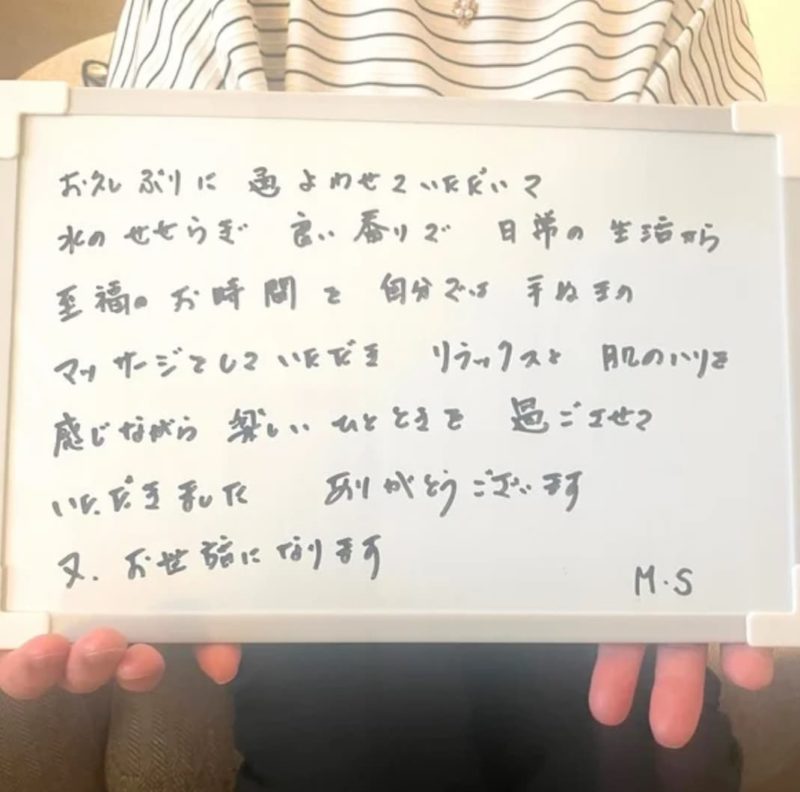 お久しぶりに 通よわせていただいて
水のせせらぎ 良い香りで 日常の生活から
至福のお時間を 自分では 手ぬきの
マッサージをしていただき リラックスと 肌のハリを
感じながら 楽しいひとときを 過ごさせて
いただきました ありがとうございます
又、お世話になります
M.S